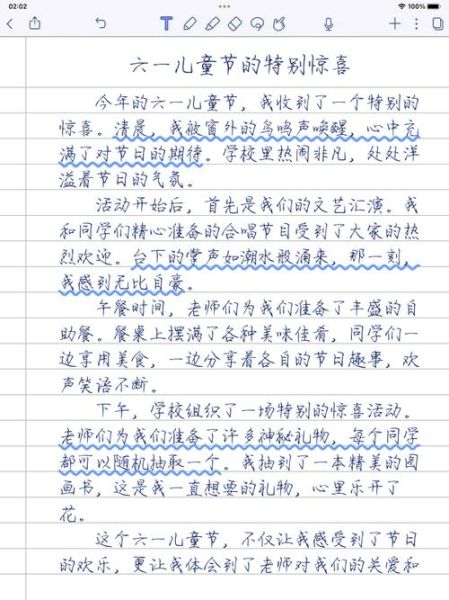 02:02
100%
六一儿童节的特别惊喜
今年的六一儿童节，我收到了一个特别的
惊喜。清晨，我被窗外的鸟鸣声唤醒，心中充
满了对节日的期待。学校里热闹非凡，处处洋
溢着节日的气氛。
活动开始后，首先是我们的文艺汇演。我
和同学们精心准备的合唱节目受到了大家的热
烈欢迎。台下的掌声如潮水般涌来，那一刻，
我感到无比自豪。
午餐时间，老师们为我们准备了丰盛的自
助餐。餐桌上摆满了各种美味佳肴，同学们一
边享用美食，一边分享着各自的节日趣事，欢
声笑语不断。
下午，学校组织了一场特别的惊喜活动。
老师们为我们准备了许多神秘礼物，每个同学
都可以随机抽取一个。我抽到了一本精美的图
画书，这是我一直想要的礼物，心里乐开了
花。
这个六一儿童节，不仅让我感受到了节日
的欢乐，更让我体会到了老师对我们的关爱和